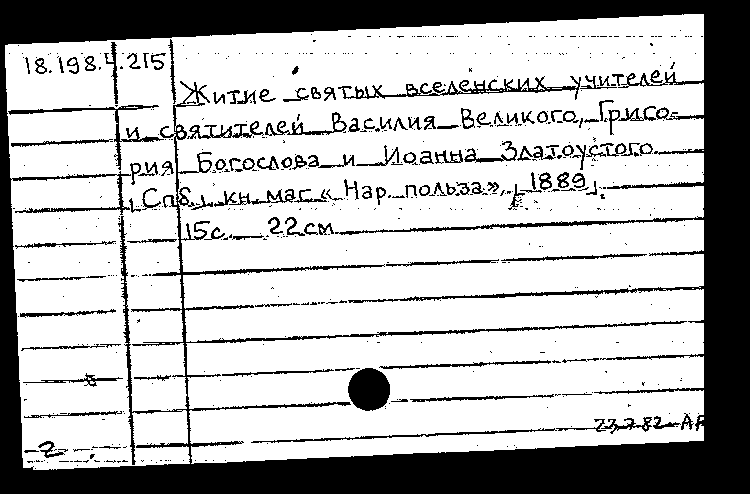 18.198.4.215
Житие святых вселенских учителей
и святителей Василия Великого, Григо-
рия Богослова и Иоанна Златоустого
[Спб.], кн. маг. «Нар. польза», [1889].
15с. 22см
23.7.82
2